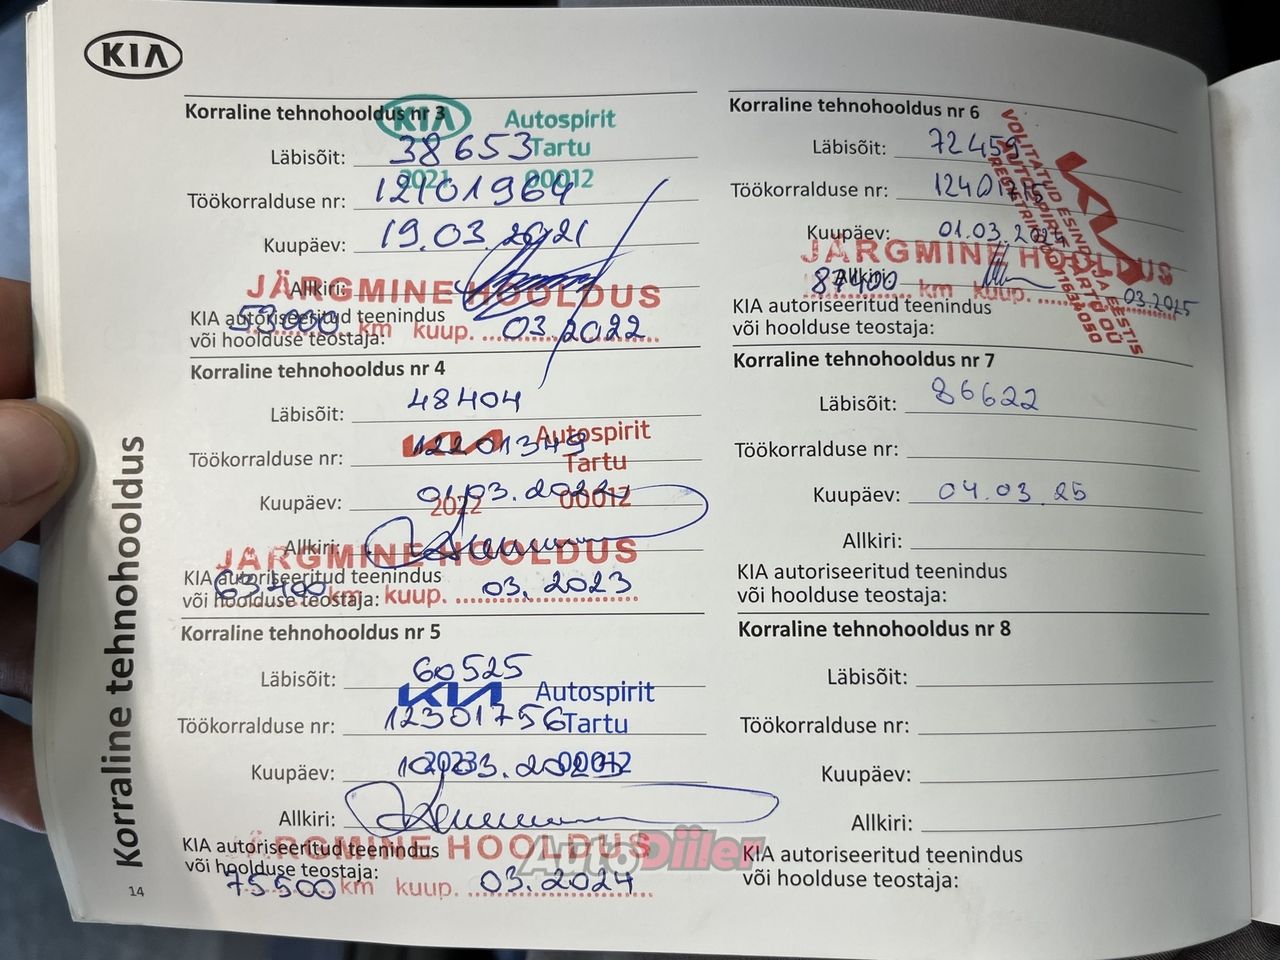 KIA
Korraline tehnohooldus nr 3
KIA Autospirit
Tartu
2021 00012
Läbisõit: 38653
Töökorralduse nr: 12101964
Kuupäev: 19.03.2021
Allkiri:
JÄRGMINE HOOLDUS
53000 km kuup. 03.2022
KIA autoriseeritud teenindus
või hoolduse teostaja:
Korraline tehnohooldus nr 4
Läbisõit: 48404
KIA Autospirit
Tartu
2022 00012
Töökorralduse nr: 12201349
Kuupäev: 01.03.2022
Allkiri:
JÄRGMINE HOOLDUS
63400 km kuup. 03.2023
KIA autoriseeritud teenindus
või hoolduse teostaja:
Korraline tehnohooldus nr 5
Läbisõit: 60525
KIA Autospirit
Tartu
2023 00012
Töökorralduse nr: 12301756
Kuupäev: 10.03.2023
Allkiri:
JÄRGMINE HOOLDUS
75500 km kuup. 03.2024
KIA autoriseeritud teenindus
või hoolduse teostaja:
Korraline tehnohooldus nr 6
Läbisõit: 72459
Töökorralduse nr: 12401715
Kuupäev: 01.03.2024
Allkiri:
KIA
VOLITATUD ESINDAJA EESTIS
AUTOSPIRIT TARTU OÜ
JÄRGMINE HOOLDUS
87400 km kuup. 03.2025
KIA autoriseeritud teenindus
või hoolduse teostaja:
Korraline tehnohooldus nr 7
Läbisõit: 86622
Töökorralduse nr:
Kuupäev: 04.03.25
Allkiri:
KIA autoriseeritud teenindus
või hoolduse teostaja:
Korraline tehnohooldus nr 8
Läbisõit:
Töökorralduse nr:
Kuupäev:
Allkiri:
KIA autoriseeritud teenindus
või hoolduse teostaja:
Korraline tehnohooldus
14
AutoDiiler